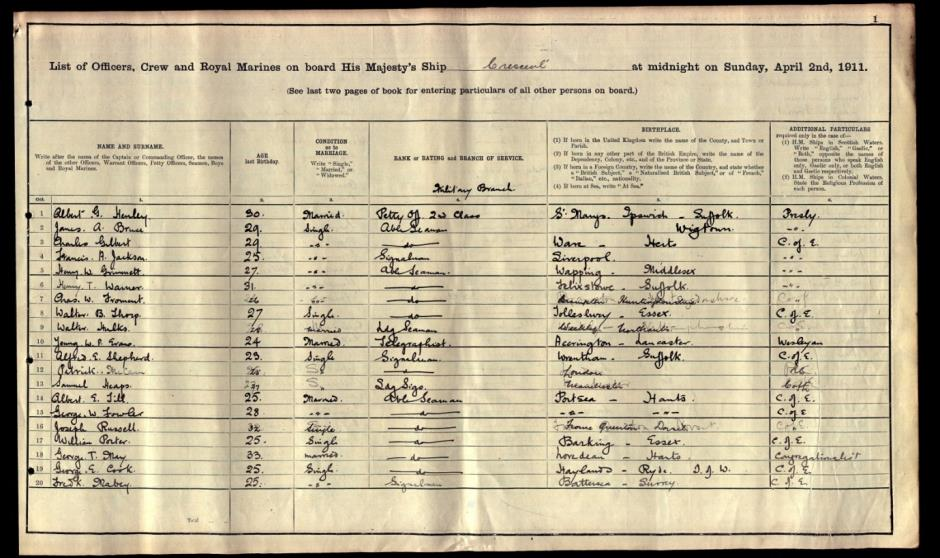 1
List of Officers, Crew and Royal Marines on board His Majesty's Ship Crescent at midnight on Sunday, April 2nd, 1911.
(See last two pages of book for entering particulars of all other persons on board.)
NAME AND SURNAME.
Write after the name of the Captain or Commanding Officer, the names of the other Officers, Warrant Officers, Petty Officers, Seamen, Boys and Royal Marines.
AGE last Birthday.
CONDITION as to MARRIAGE.
Write "Single," "Married," or "Widowed."
RANK or RATING and BRANCH OF SERVICE.
Military Branch
BIRTHPLACE.
(1) If born in the United Kingdom write the name of the County, and Town or Parish.
(2) If born in any other part of the British Empire, write the name of the Dependency, Colony, etc., and of the Province or State.
(3) If born in a Foreign Country, write the name of the Country, and state whether a "British Subject," a "Naturalised British Subject," or of "French," "Italian," etc., nationality.
(4) If born at Sea, write "At Sea."
ADDITIONAL PARTICULARS required only in the case of—
(1) H.M. Ships in Scottish Waters. Write "English," "Gaelic," or "Both," opposite the names of those persons who speak English only, Gaelic only, or both English and Gaelic respectively.
(2) H.M. Ships in Colonial Waters. State the Religious Profession of each person.
1 Albert G. Henley 30. Married. Petty Off 2nd Class St Marys Ipswich - Suffolk Presby.
2 James A. Bruce 29. Single Able Seaman Wigtown -"-
3 Charles Gilbert 29 -"- do Ware - Herts C. of E.
4 Francis A. Jackson. 25. -"- Signalman Liverpool. -"-
5 Henry W. Grimmett 27. -"- Able Seaman. Wapping - Middlesex -"-
6 Henry T. Warner 31. -"- do Felixstowe - Suffolk. -"-
7 Chas. W. Fromont. do
8 Walter B. Thorp. 27 Single. do Tollesbury - Essex. C. of E.
9 Walter Hulks. Married Ldg Seaman
10 Young W. P. Evans. 24 Married. Telegraphist. Accrington - Lancaster. Wesleyan
11 Alfred E. Shepherd. 23. Single Signalman. Wrentham - Suffolk. C. of E.
12 Patrick London
13 Samuel Heaps. S Ldg Sigs.
14 Albert E. Till. 25. Married. Able Seaman Portsea - Hants. C. of E.
15 George W. Fowler 28 -"- do -"- -"- C. of E
16 Joseph Russell. 32 Single do Frome
17 William Porter. 25. Single do Barking - Essex. C. of E.
18 George T. May 33. Married. do Lovedean - Hants. Congregationalist
19 George E. Cook. 25. Single do Haylands - Ryde. I. of W. C. of E.
20 Fredk. Mabey. 25. -"- Signalman Battersea - Surrey. C. of E.